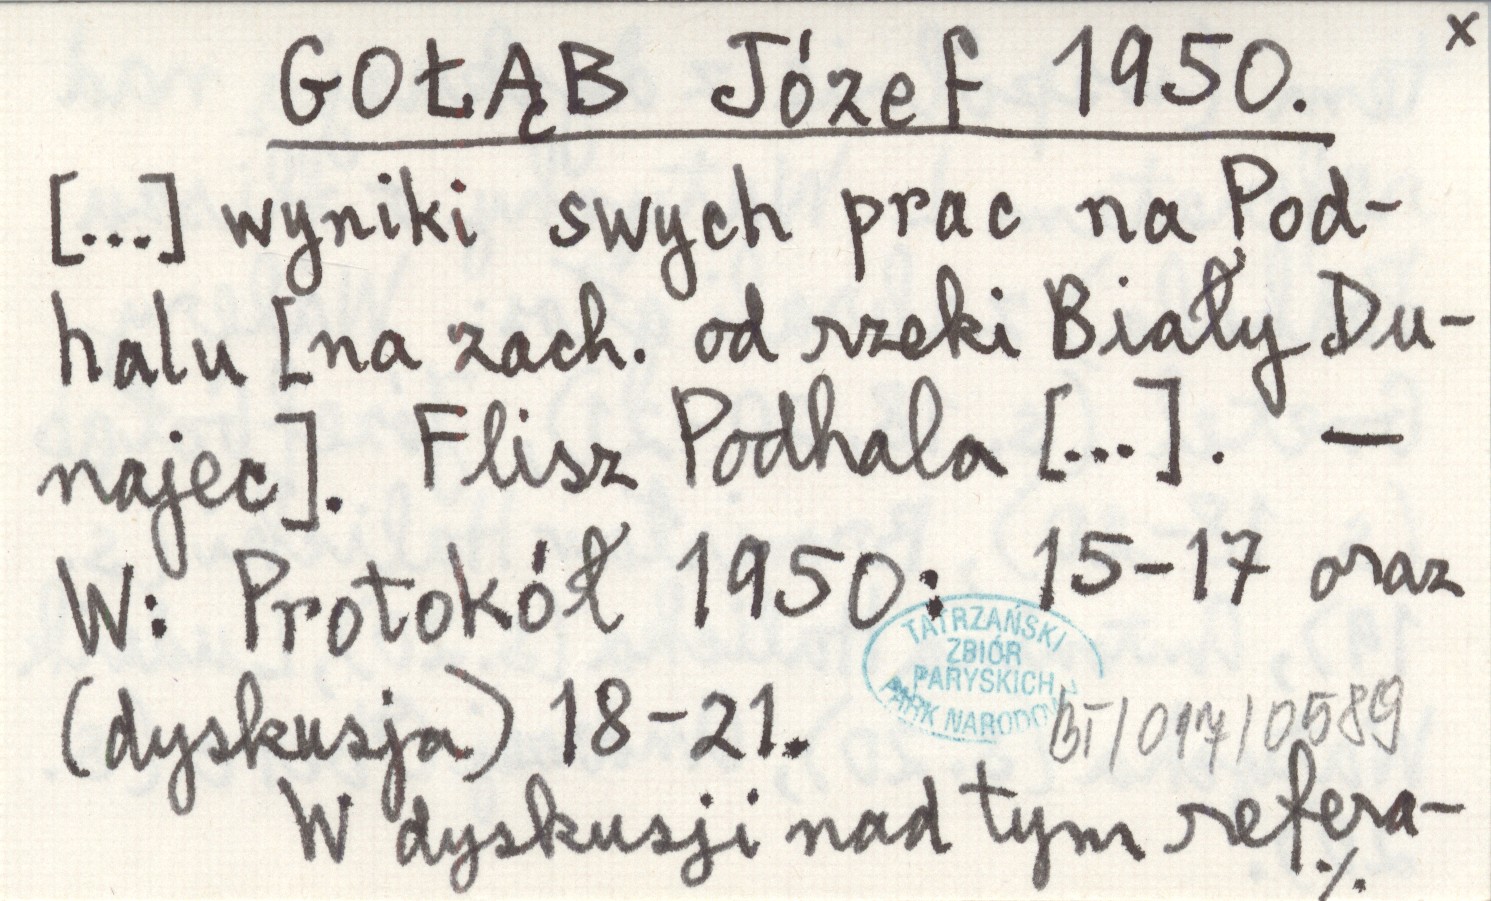 x
GOŁĄB Józef 1950.
[...] wyniki swych prac na Pod-
halu [na zach. od rzeki Biały Du-
najec]. Flisz Podhala [...]. —
W: Protokół 1950: 15-17 oraz
TATRZAŃSKI
ZBIÓR
PARYSKICH
PARK NARODOWY
(dyskusja) 18-21.
BT/017/0589
W dyskusji nad tym refera-
./.